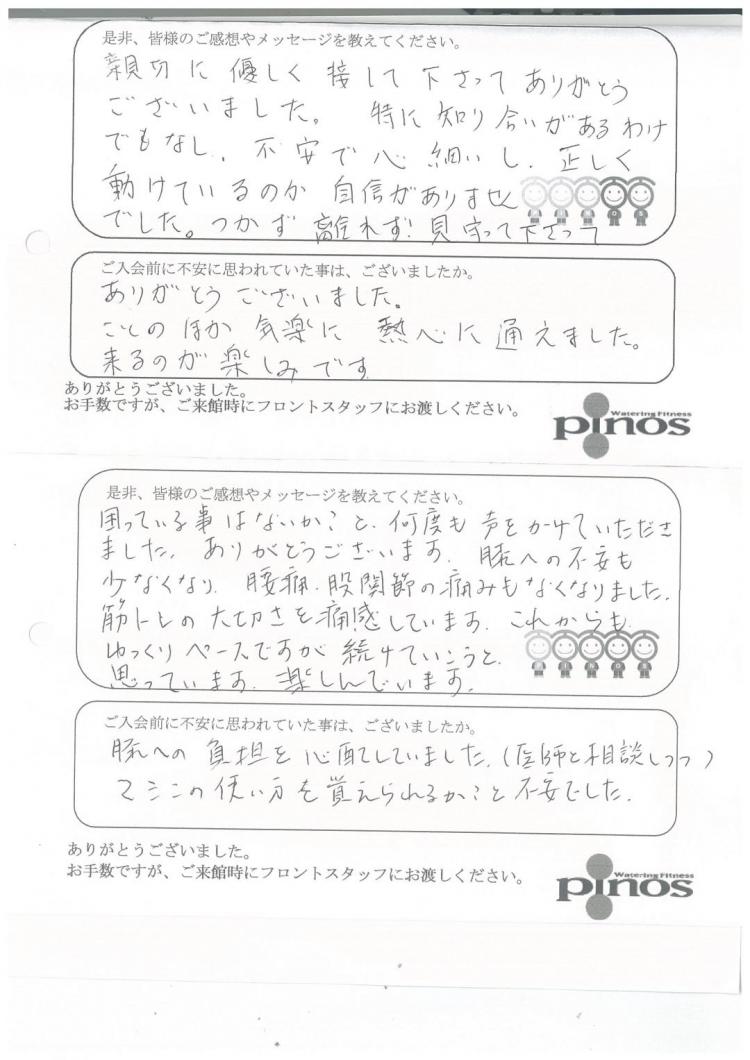 是非、皆様のご感想やメッセージを教えてください。
親切に優しく接して下さってありがとう
ございました。 特に知り合いがあるわけ
でもなし、不安で心細いし、正しく
動けているのか 自信がありません
でした。つかず離れず!見守って下さって
ご入会前に不安に思われていた事は、ございましたか。
ありがとうございました。
ことのほか 気楽に 熱心に通えました。
来るのが楽しみです
ありがとうございました。
お手数ですが、ご来館時にフロントスタッフにお渡しください。
Watering Fitness
pinos
是非、皆様のご感想やメッセージを教えてください。
困っている事はないか?と、何度も声をかけていただき
ました。ありがとうございます。膝への不安も
少なくなり、腰痛、股関節の痛みもなくなりました。
筋トレの大切さを痛感しています。これからも
ゆっくりペースですが続けていこうと
思っています。楽しんでいます。
ご入会前に不安に思われていた事は、ございましたか。
膝への負担を心配していました。(医師と相談しつつ)
マシンの使い方を覚えられるか?と不安でした。
ありがとうございました。
お手数ですが、ご来館時にフロントスタッフにお渡しください。
Watering Fitness
pinos